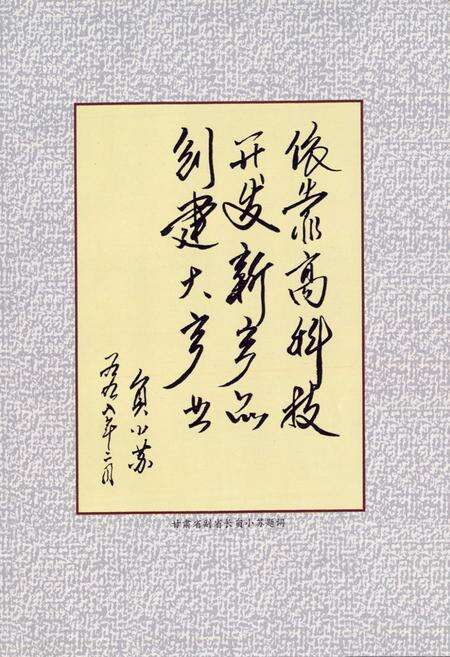 依靠高科技
开发新产品
创建大产业
负小苏
一九九八年二月
甘肃省副省长负小苏题词